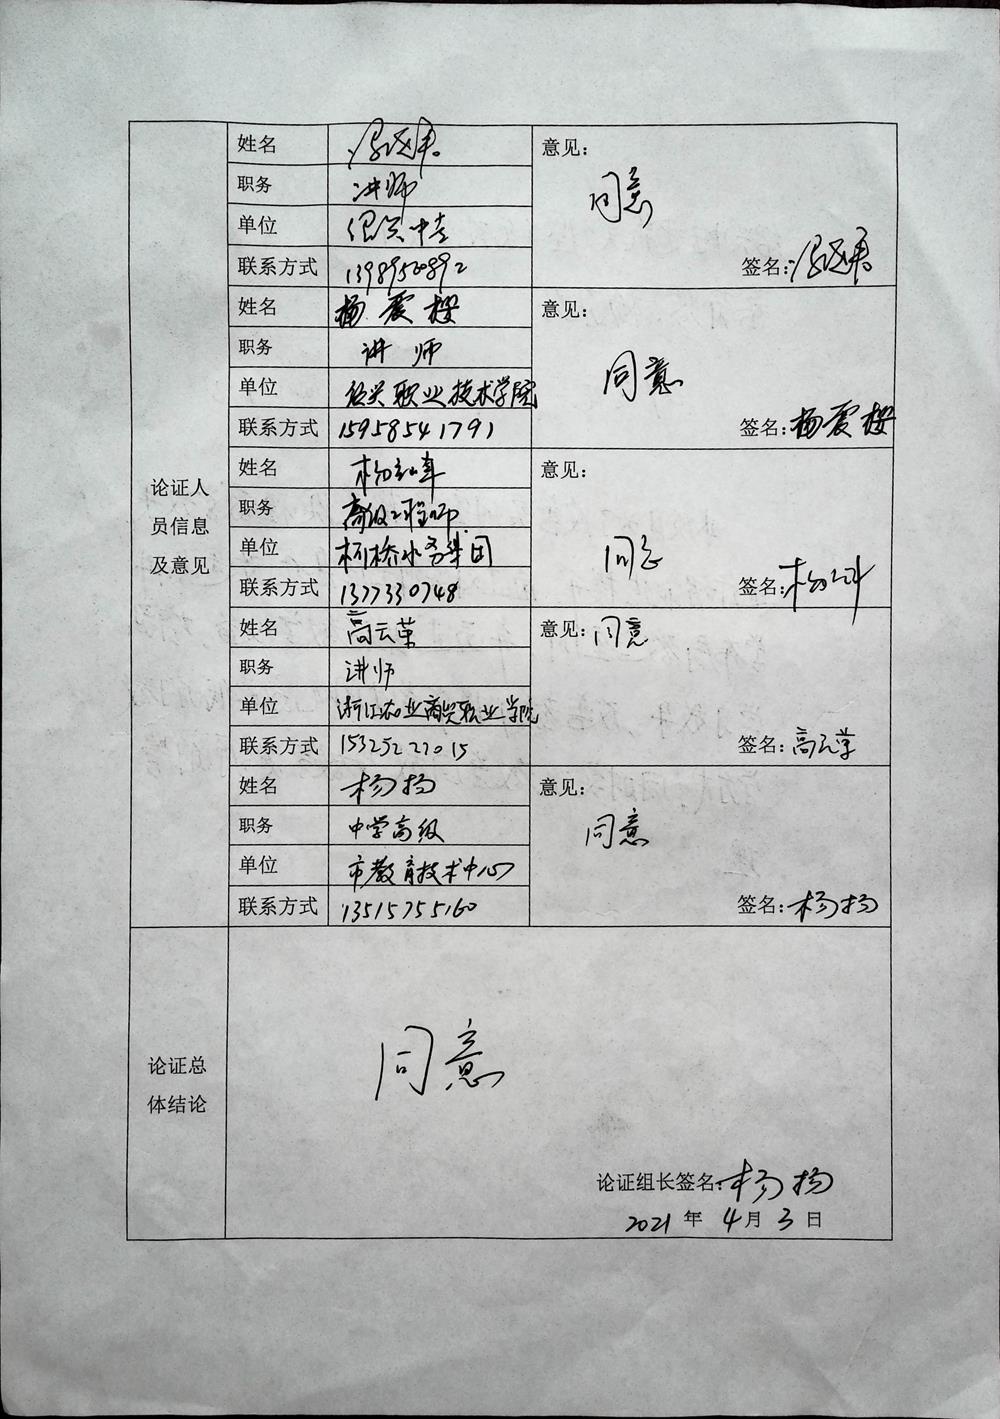 姓名
意见：
职务 讲师
同意
单位
签名：
联系方式 13989520892
姓名 杨震樱
意见：
职务 讲师
同意
单位 绍兴职业技术学院
签名：杨震樱
联系方式 15958541791
姓名
意见：
职务 高级工程师
单位 柯桥水务集团
同意
签名：
联系方式 13777330748
姓名
意见：同意
职务 讲师
单位 浙江农业商贸职业学院
签名：
联系方式 15325227015
姓名 杨扬
意见：
职务 中学高级
同意
单位 市教育技术中心
签名：杨扬
联系方式 13515755160
论证人
员信息
及意见
论证总
体结论
同意
论证组长签名：杨扬
2021 年 4 月 3 日